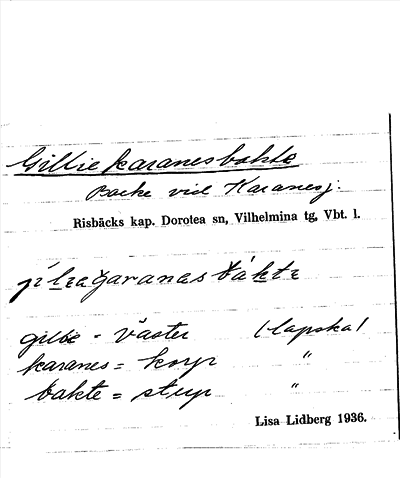 Gillie karanesbakte
Backe vid Karanesj.
Risbäcks kap. Dorotea sn, Vilhelmina tg, Vbt. l.
gilbe = väster (lapska)
karanes = korp "
bakte = stup "
Lisa Lidberg 1936.